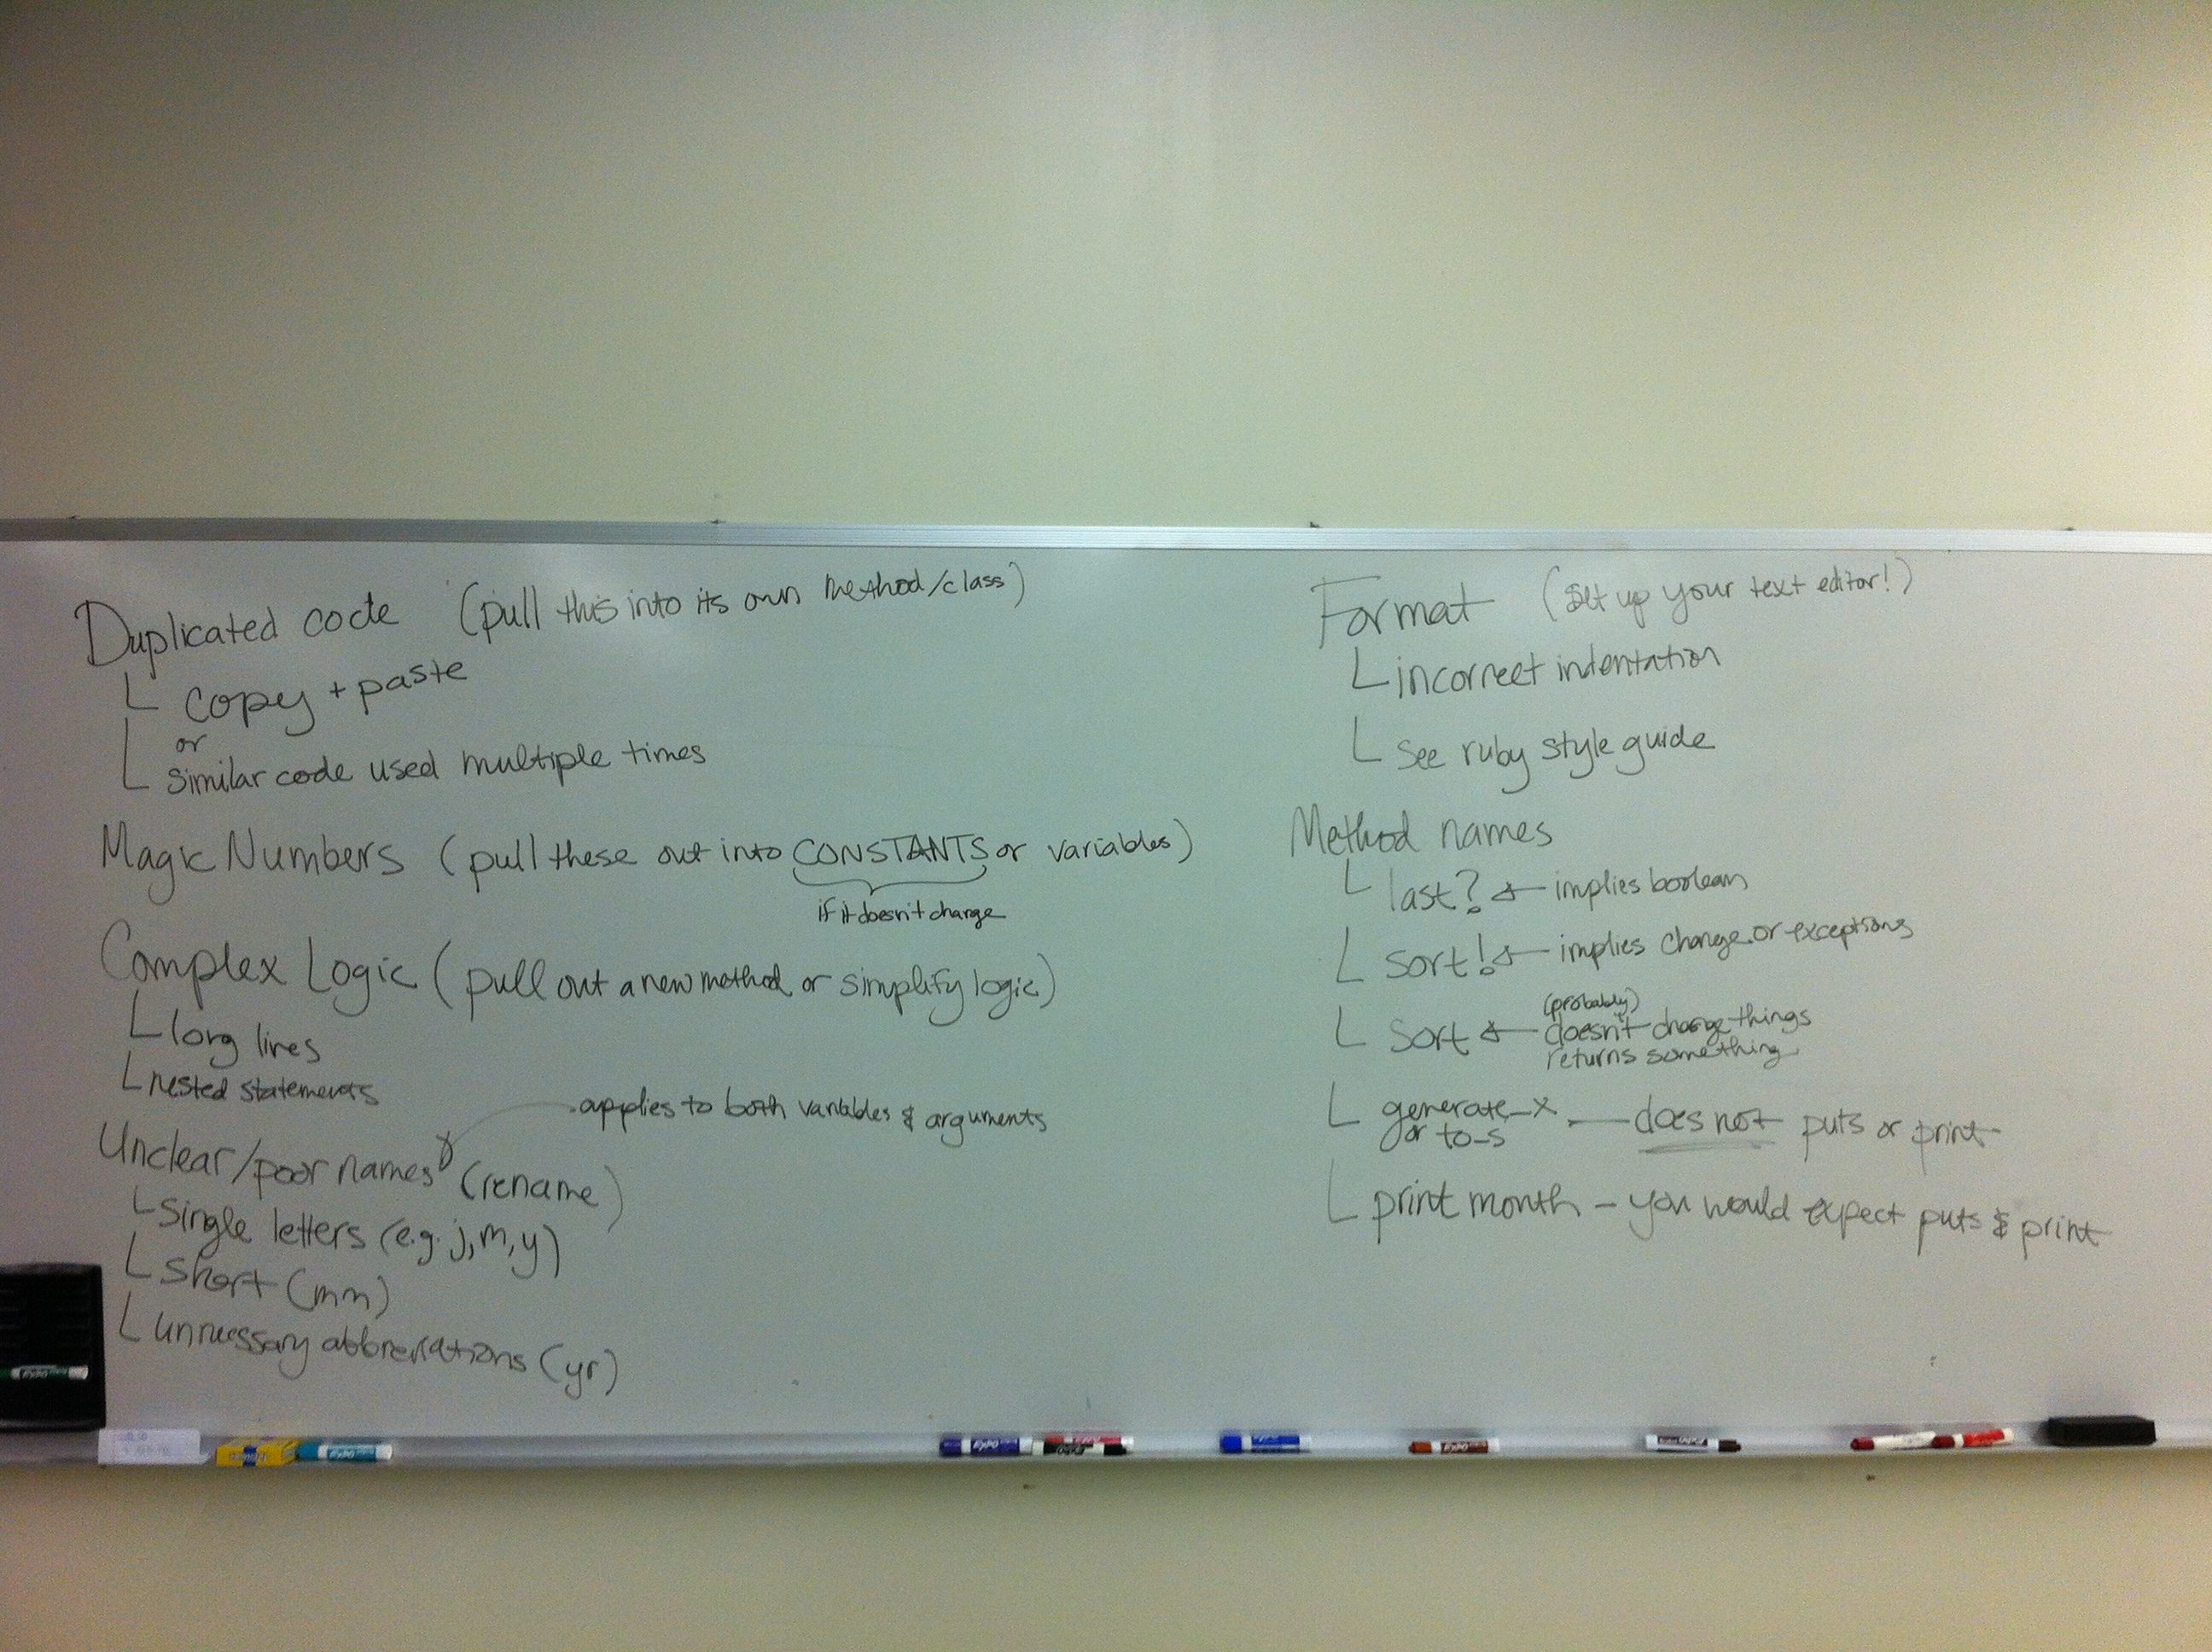 Duplicated code (pull this into its own method/class)
copy + paste
or
similar code used multiple times
Magic Numbers (pull these out into CONSTANTS or variables)
if it doesn't change
Complex Logic (pull out a new method or simplify logic)
long lines
nested statements
applies to both variables & arguments
Unclear/poor names (rename)
single letters (e.g. j, m, y)
short (mm)
unnecssary abbreviations (yr)
Format (set up your text editor!)
incorrect indentation
see ruby style guide
Method names
last? ← implies boolean
sort! ← implies change or exceptions
(probably)
sort ← doesn't change things
returns something
generate_x — does not puts or print
or to_s
print month – you would expect puts & print
EXPO
EXPO
EXPO
EXPO